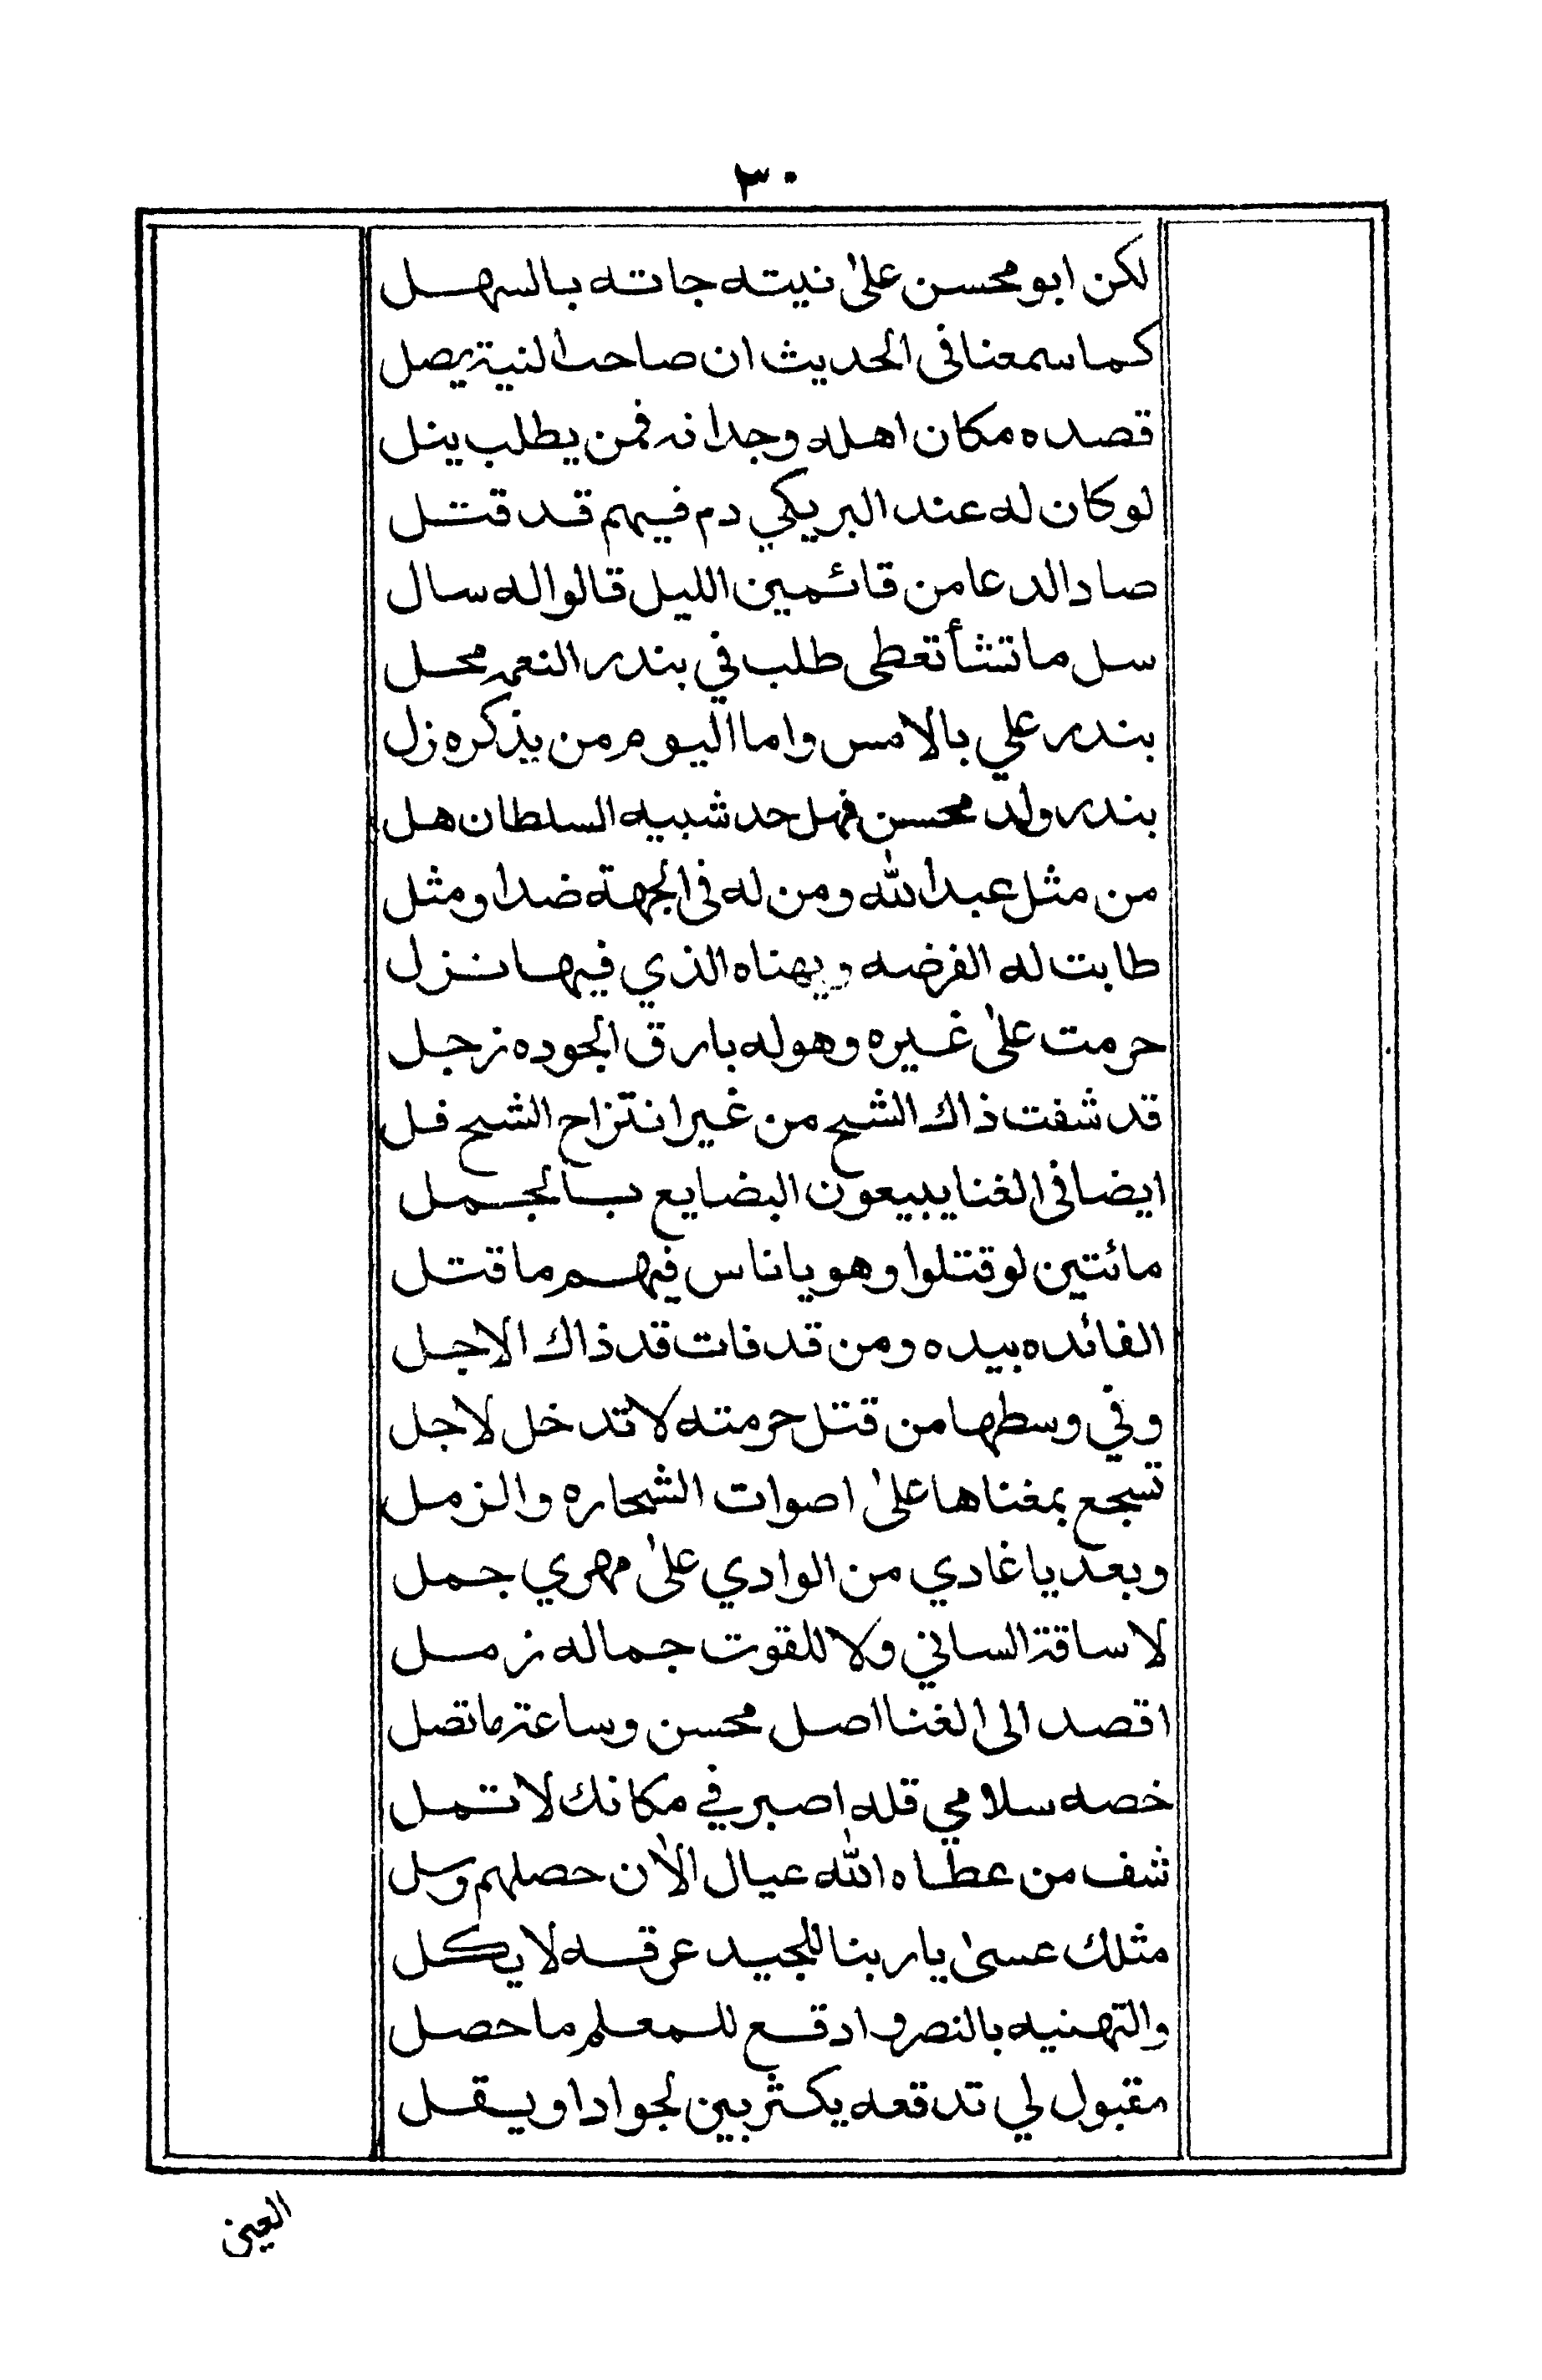 ٣٠
لكن ابو محسن على نيته جاته بالسهل
كما سمعنا فى الحديث ان صاحب النية يصل
قصده مكان اهله وجدانه فمن يطلب ينل
لو كان له عند البريكي دم فيهم قد قتل
صاد الدعا من قائمين الليل قالوا له سال
سل ما تشأ تعطى طلب في بندر النعمه محل
بندر علي بالامس واما اليوم من يذكره زل
بندر ولد محسن فهل حد شبيه السلطان هل
من مثل عبد الله ومن له فى الجهة ضدا ومثل
طابت له الفرضه ويهناه الذي فيها نزل
حرمت على غيره وهو له بارق الجوده زجل
قد شفت ذاك الشح من غير انتزاح الشح فل
ايضا فى الغنا يبيعون البضايع بالجمل
مائتين لو قتلوا وهو يا ناس فيهم ما قتل
الفائده بيده ومن قد فات قد ذاك الاجل
وفي وسطها من قتل حرمته لا تدخل لاجل
تسجع بمغناها على اصوات الشحاره والزمل
وبعد يا غادي من الوادي على مهري جمل
لا ساقة الساني ولا للقوت جماله زمل
اقصد الى الغنا اصل محسن وساعة ما تصل
خصه سلامي قله اصبر في مكانك لا تمل
شف من عطاه الله عيال الأن حصلهم وسل
مثلك عسى يا ربنا للجيد عرقه لا يكل
والتهنيه بالنصر وادقع للمعلم ما حصل
مقبول لي تدقعه يكثر بين لجوادا ويقل
العين